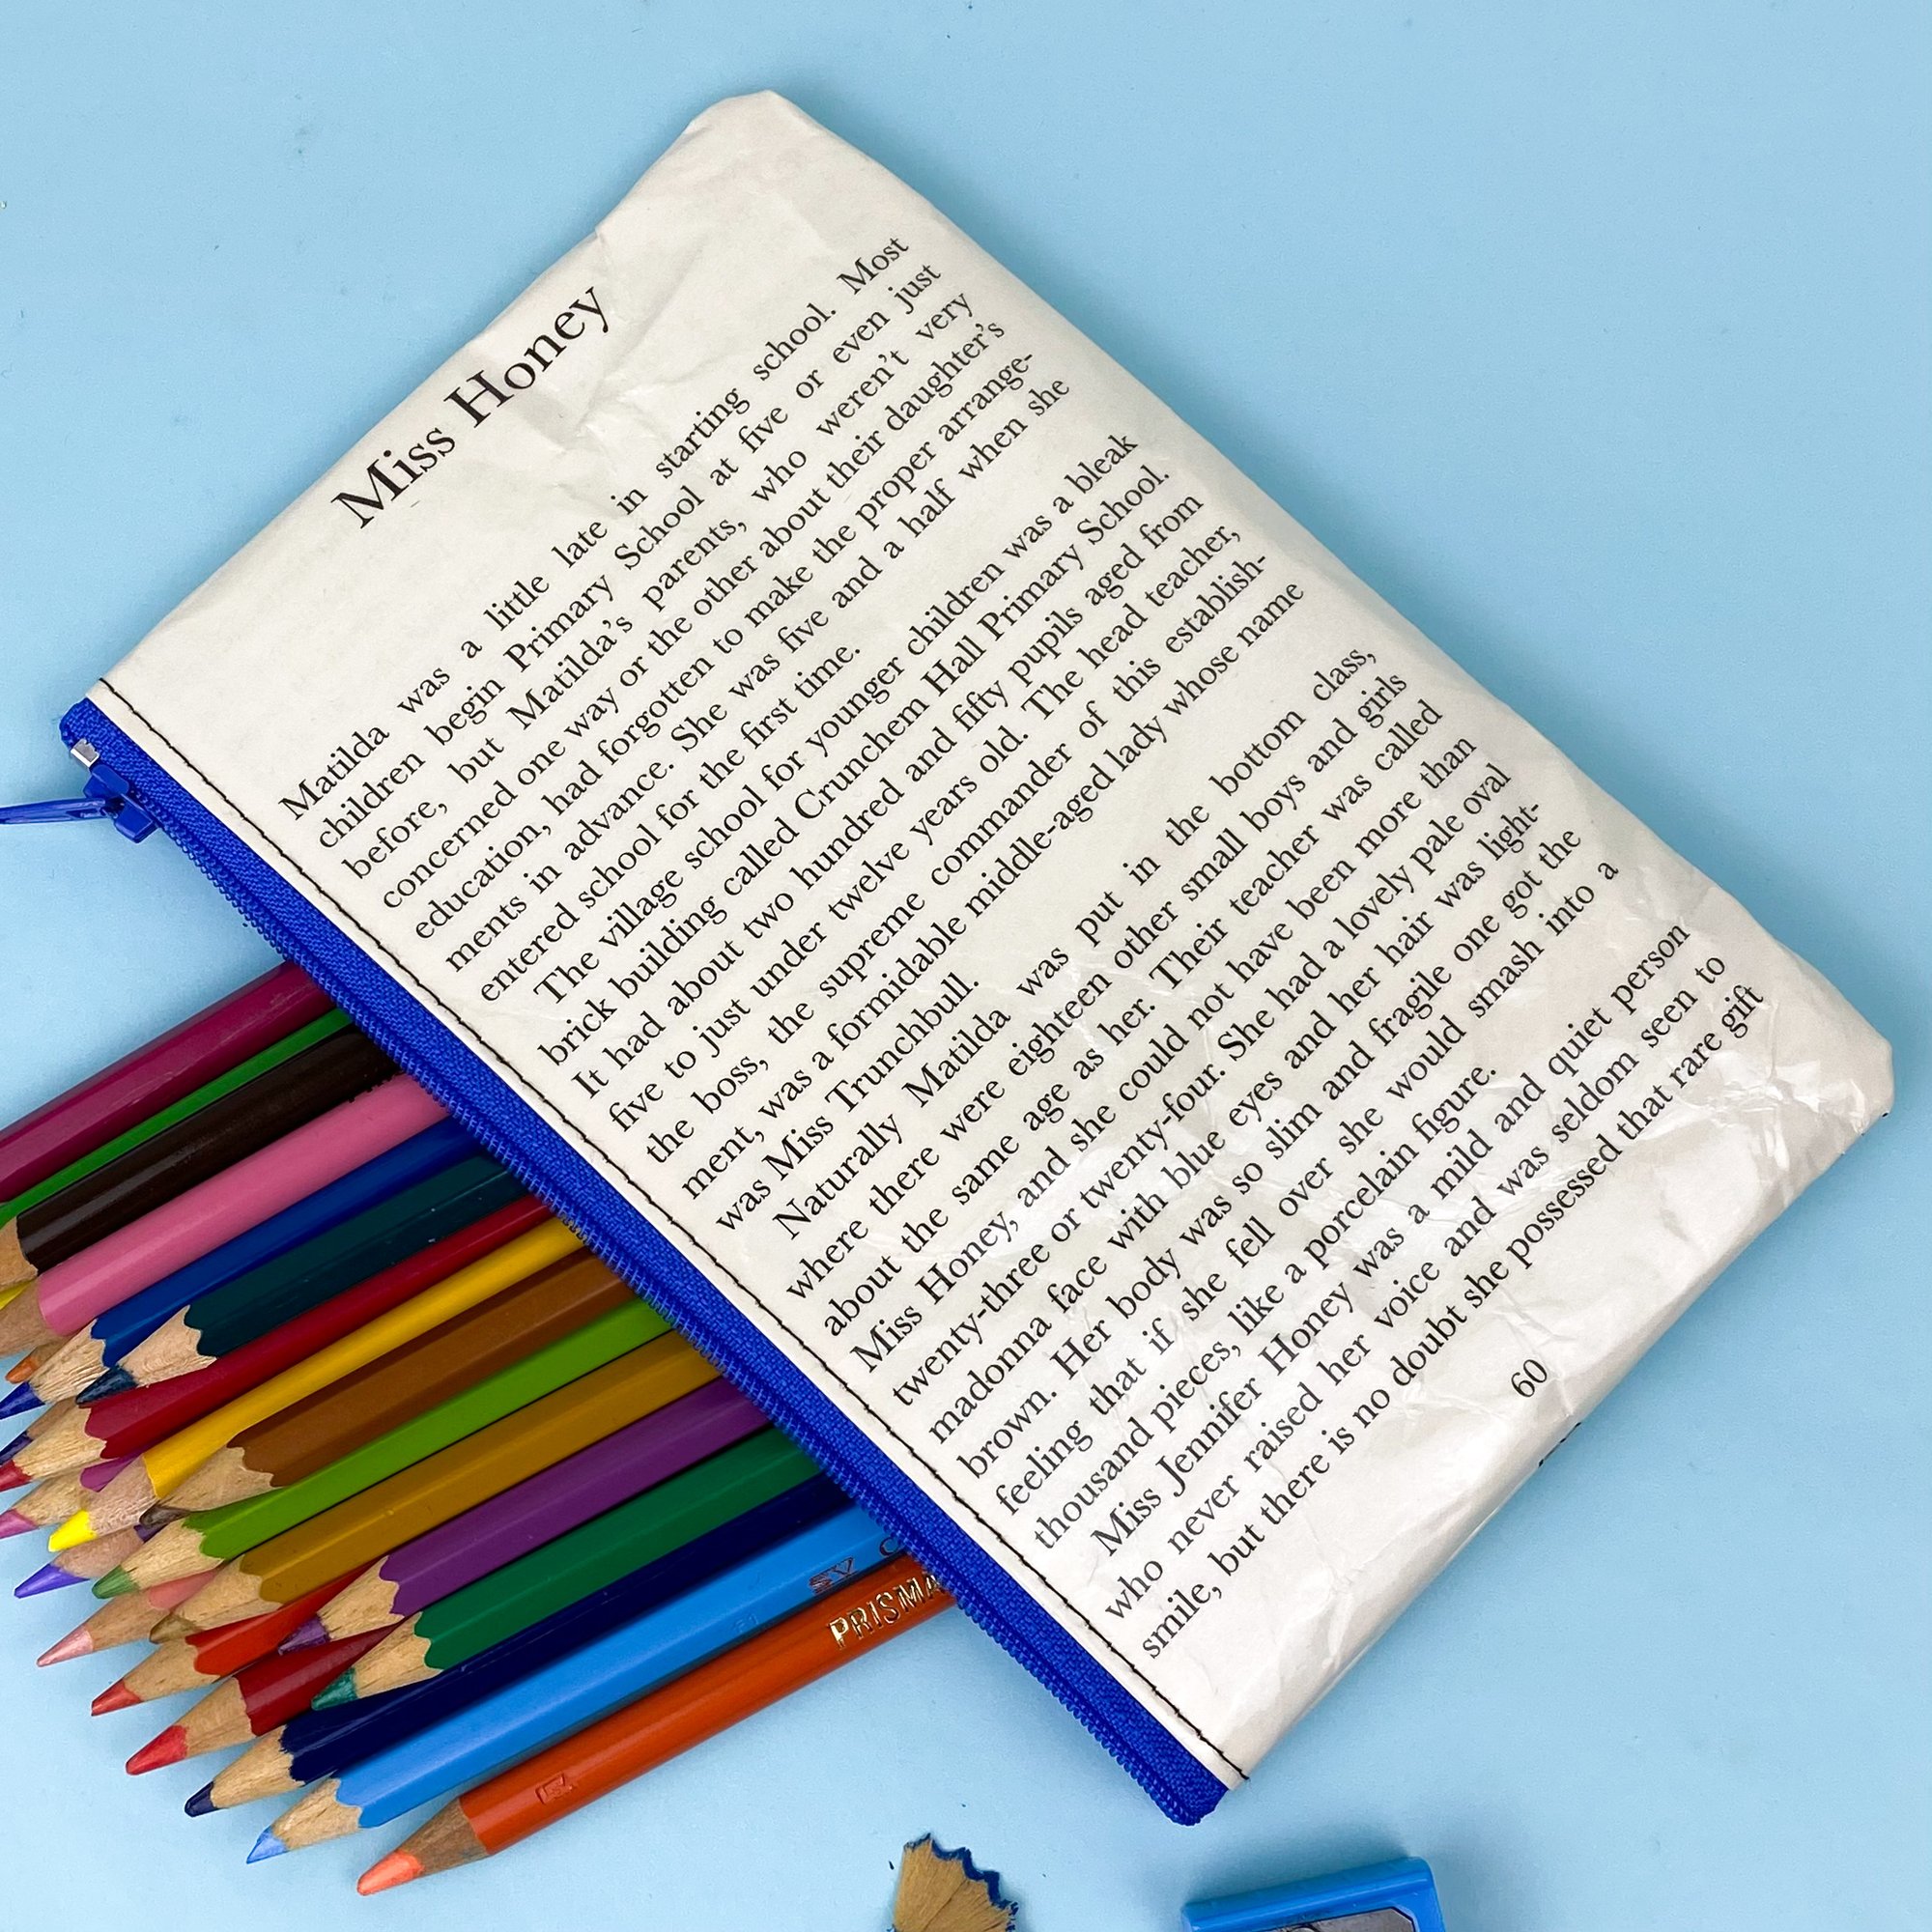 Miss Honey
Matilda was a little late in starting school. Most
children begin Primary School at five or even just
before, but Matilda's parents, who weren't very
concerned one way or the other about their daughter's
education, had forgotten to make the proper arrange-
ments in advance. She was five and a half when she
entered school for the first time.
The village school for younger children was a bleak
brick building called Crunchem Hall Primary School.
It had about two hundred and fifty pupils aged from
five to just under twelve years old. The head teacher,
the boss, the supreme commander of this establish-
ment, was a formidable middle-aged lady whose name
was Miss Trunchbull.
Naturally Matilda was put in the bottom class,
where there were eighteen other small boys and girls
about the same age as her. Their teacher was called
Miss Honey, and she could not have been more than
twenty-three or twenty-four. She had a lovely pale oval
madonna face with blue eyes and her hair was light-
brown. Her body was so slim and fragile one got the
feeling that if she fell over she would smash into a
thousand pieces, like a porcelain figure.
Miss Jennifer Honey was a mild and quiet person
who never raised her voice and was seldom seen to
smile, but there is no doubt she possessed that rare gift
60
PRISMA